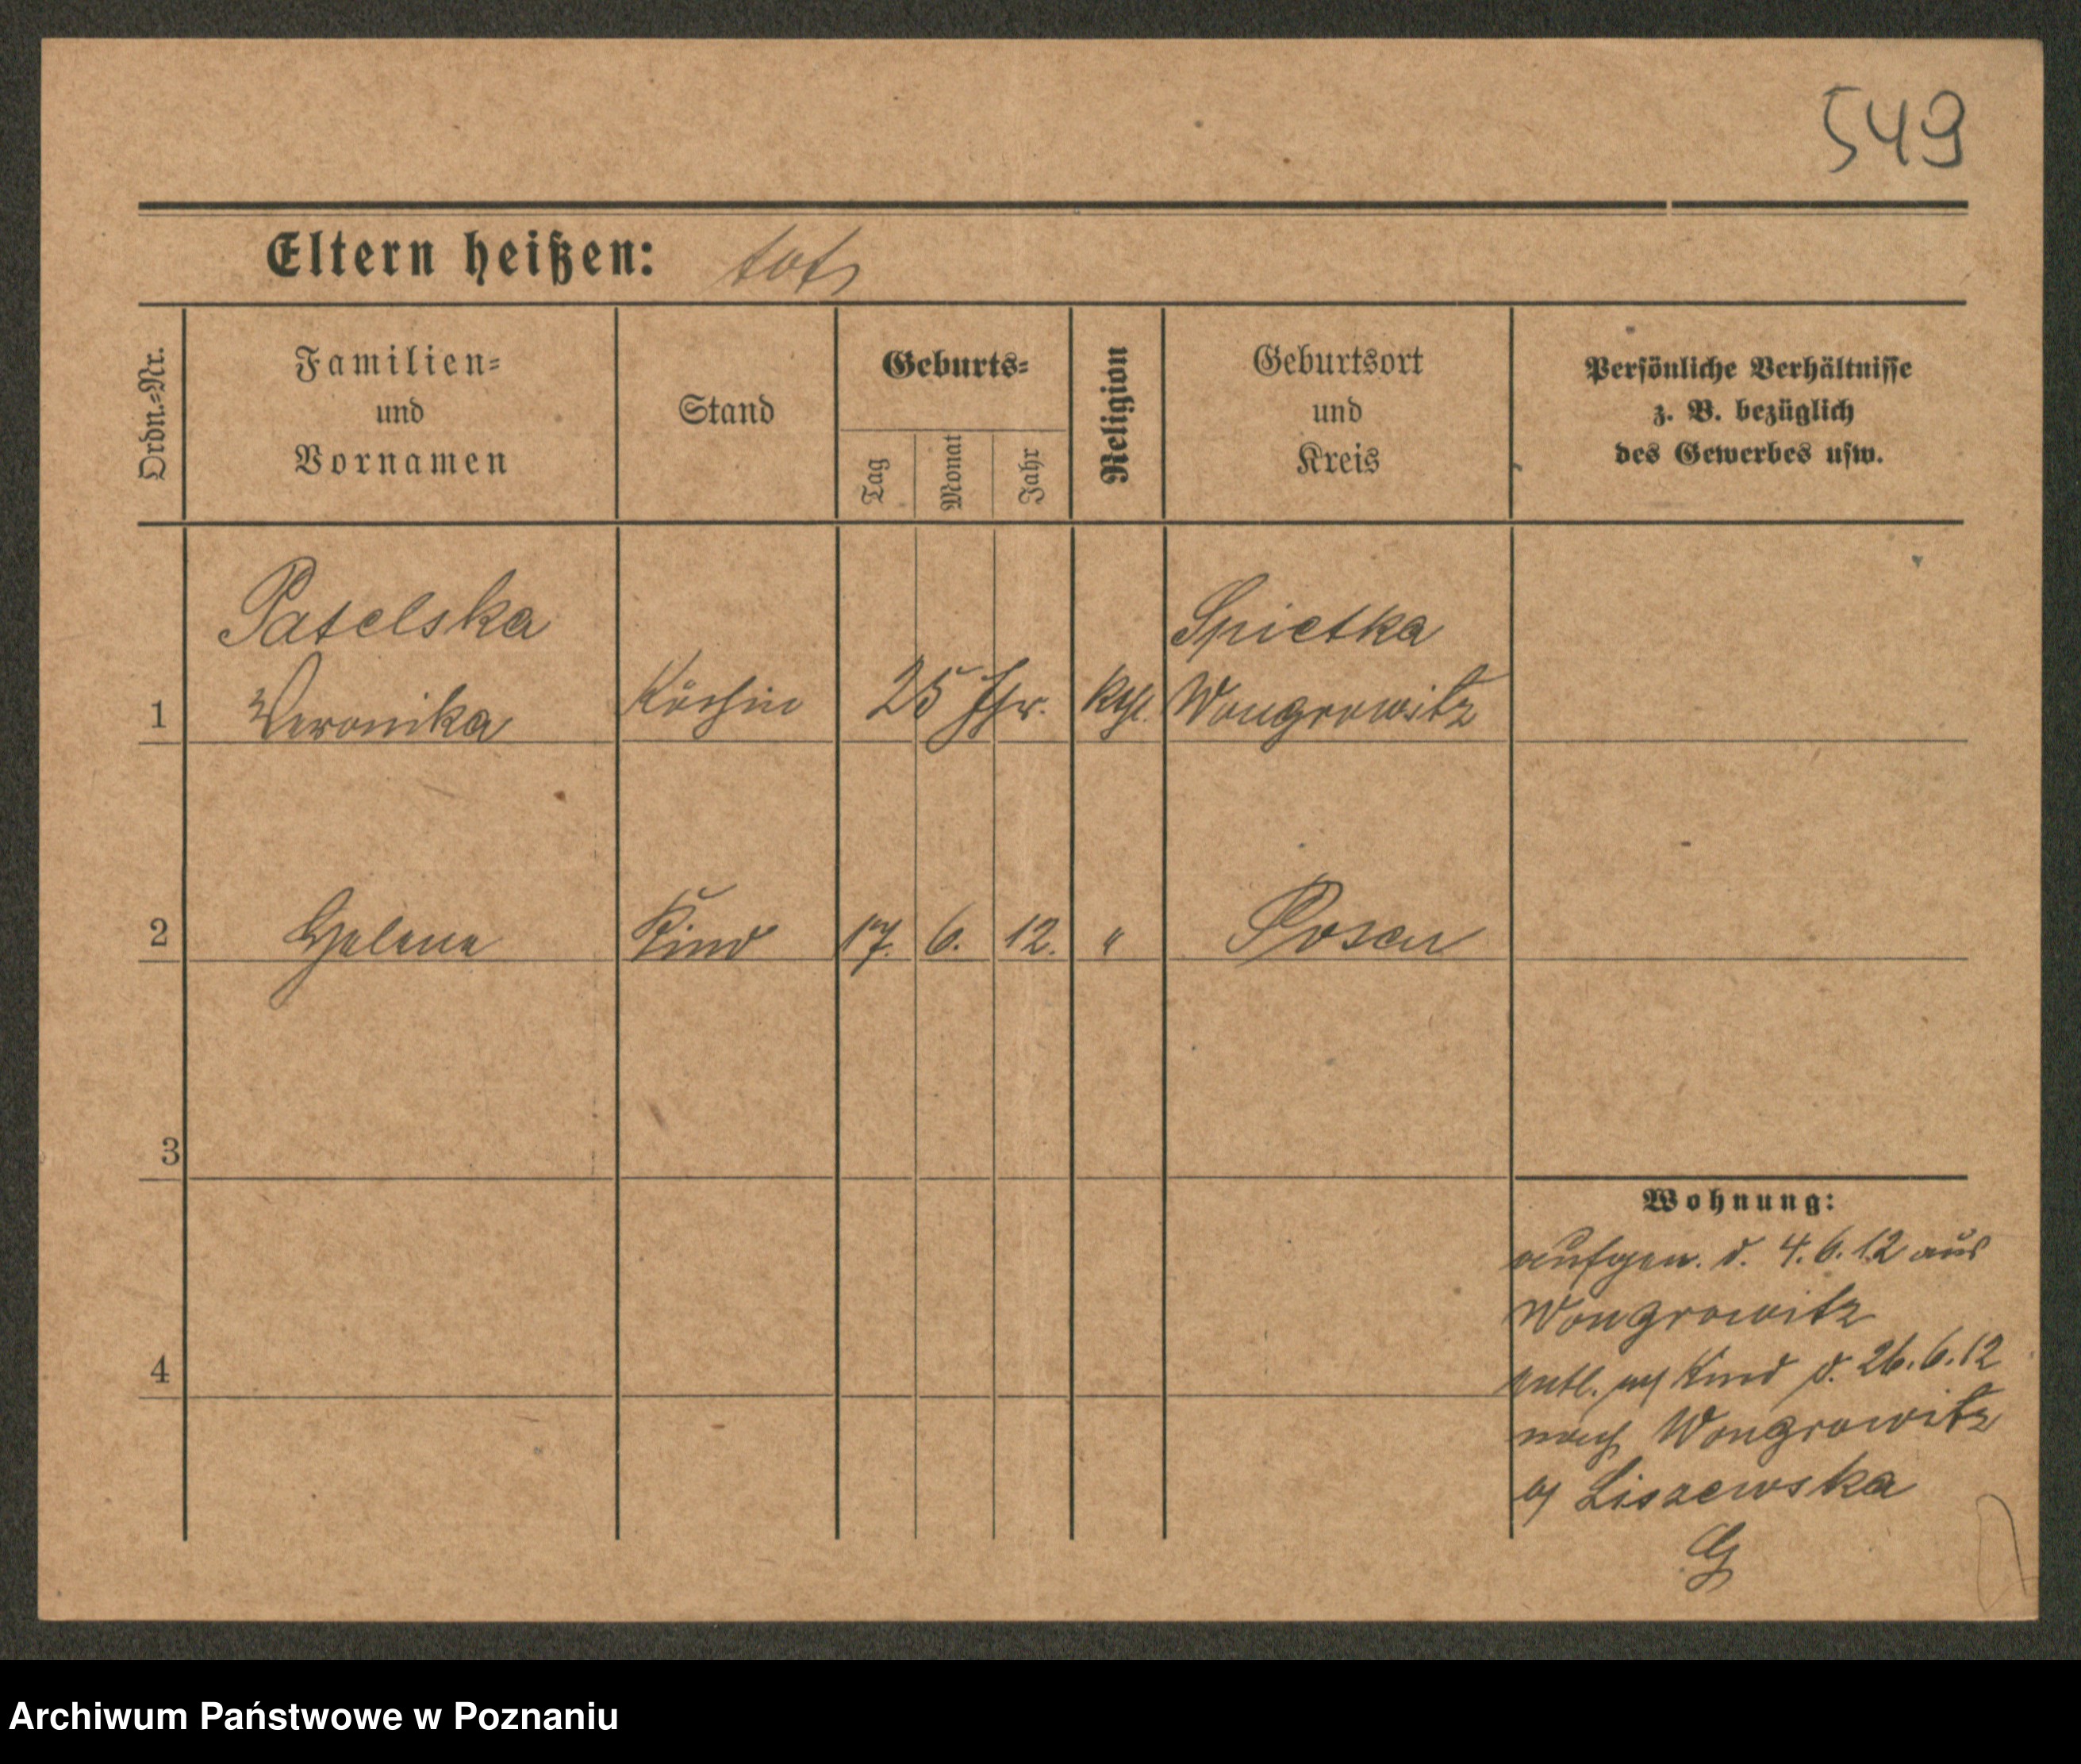 549
Eltern heißen: tot
Ordn.-Nr.
Familien-
und
Vornamen
Stand
Geburts-
Tag
Monat
Jahr
Religion
Geburtsort
und
Kreis
Persönliche Verhältnisse
z. B. bezüglich
des Gewerbes usw.
Patelska Spietka
1 Veronika Köchin 25 Jhr. kth. Wongrowitz
2 Helene Kind 17. 6. 12. " Posen
3
4
Wohnung:
aufgen. d. 4.6.12 aus
Wongrowitz
entl. m Kind d. 26.6.12
nach Wongrowitz
Liszewska
G
Archiwum Państwowe w Poznaniu